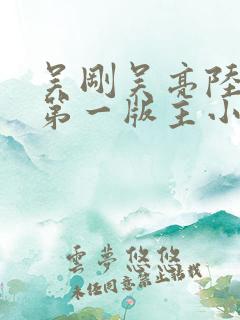 吴刚吴亮陸
第一版主小
雲夢悠悠
未经同意禁止转载